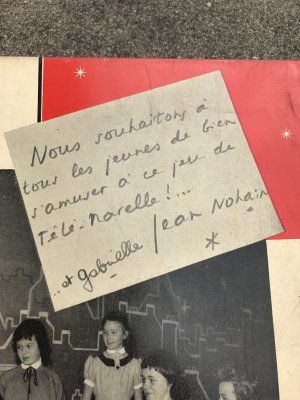 Nous souhaitons à
tous les jeunes de bien
s'amuser à ce jeu de
Télé-Marelle !...
Jean Nohain
..et Gabrielle